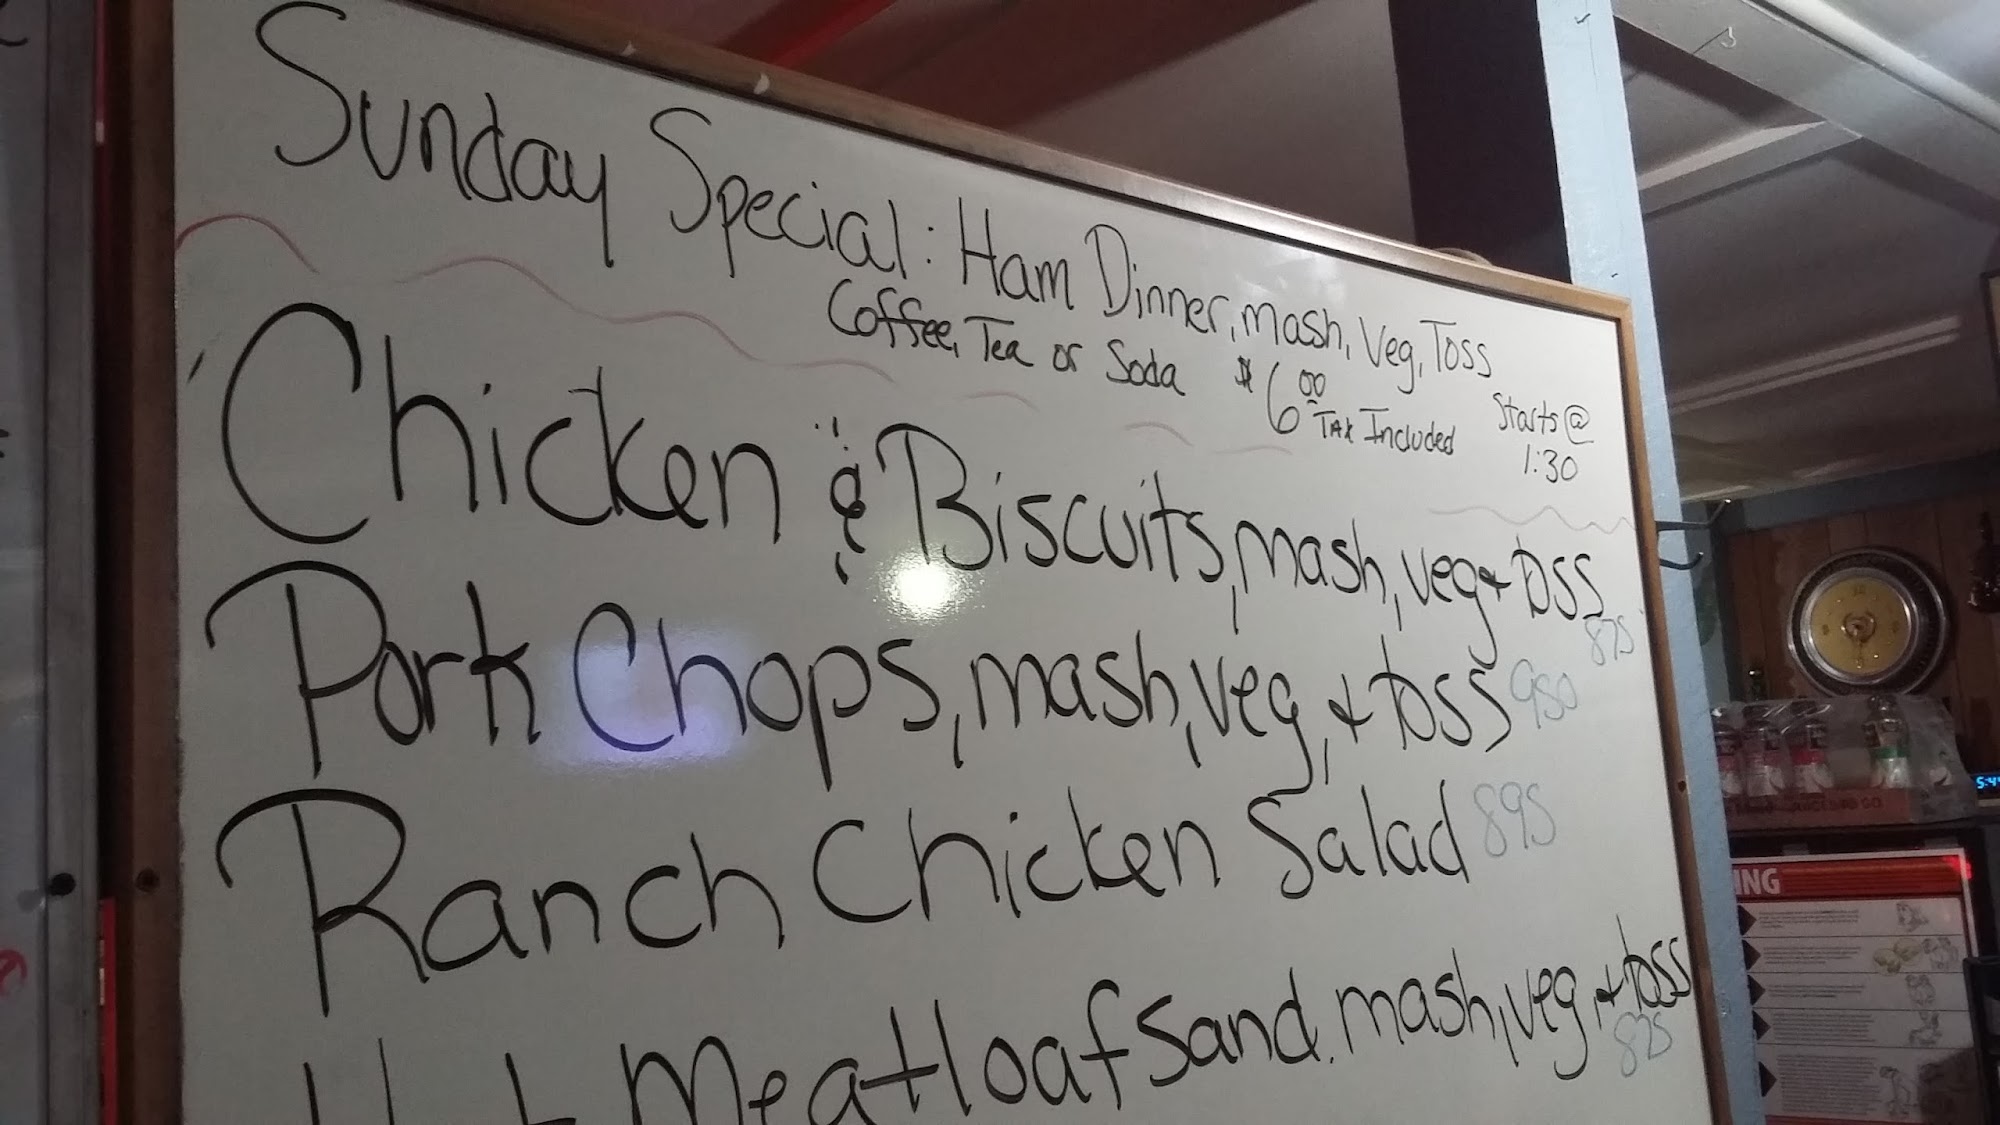 Sunday Special: Ham Dinner, mash, Veg, Toss
Coffee, Tea or Soda $6.00 Tax Included
Starts @
1:30
Chicken & Biscuits, mash, veg & toss
875
Pork Chops, mash, veg, & toss 950
Ranch Chicken Salad 895
Hot Meatloaf Sand. mash, veg, & toss
825
ING
5:4